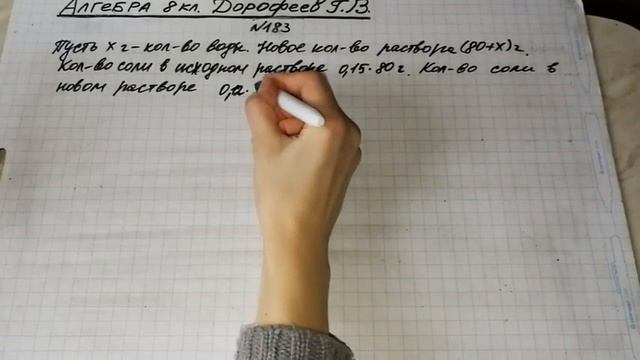 Алгебра 8 кл. Дорофеев Г.В.
№183
Пусть х г - кол-во воды. Новое кол-во раствора (80+х) г.
Кол-во соли в исходном растворе 0,15·80 г. Кол-во соли в
новом растворе 0,12·